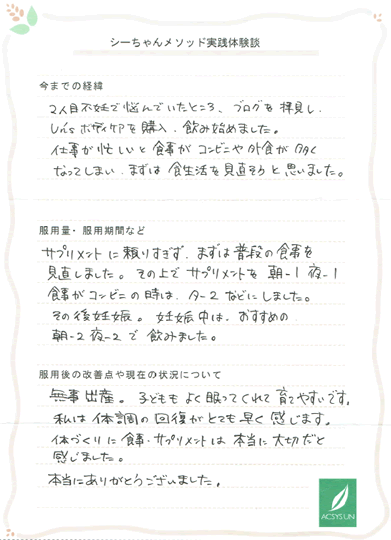 シーちゃんメソッド実践体験談
今までの経緯
2人目不妊で悩んでいたところ、ブログを拝見し、
ボディケアを購入、飲み始めました。
仕事が忙しいと食事がコンビニや外食が多く
なってしまい、まずは食生活を見直そうと思いました。
服用量・服用期間など
サプリメントに頼りすぎず、まずは普段の食事を
見直しました。その上でサプリメントを朝-1 夜-1
食事がコンビニの時は、夕-2などにしました。
その後妊娠。妊娠中は、おすすめの
朝-2 夜-2で飲みました。
服用後の改善点や現在の状況について
無事出産。子どももよく眠ってくれて育てやすいです。
私は体調の回復がとても早く感じます。
体づくりに食事・サプリメントは本当に大切だと
感じました。
本当にありがとうございました。
ACSYSUN